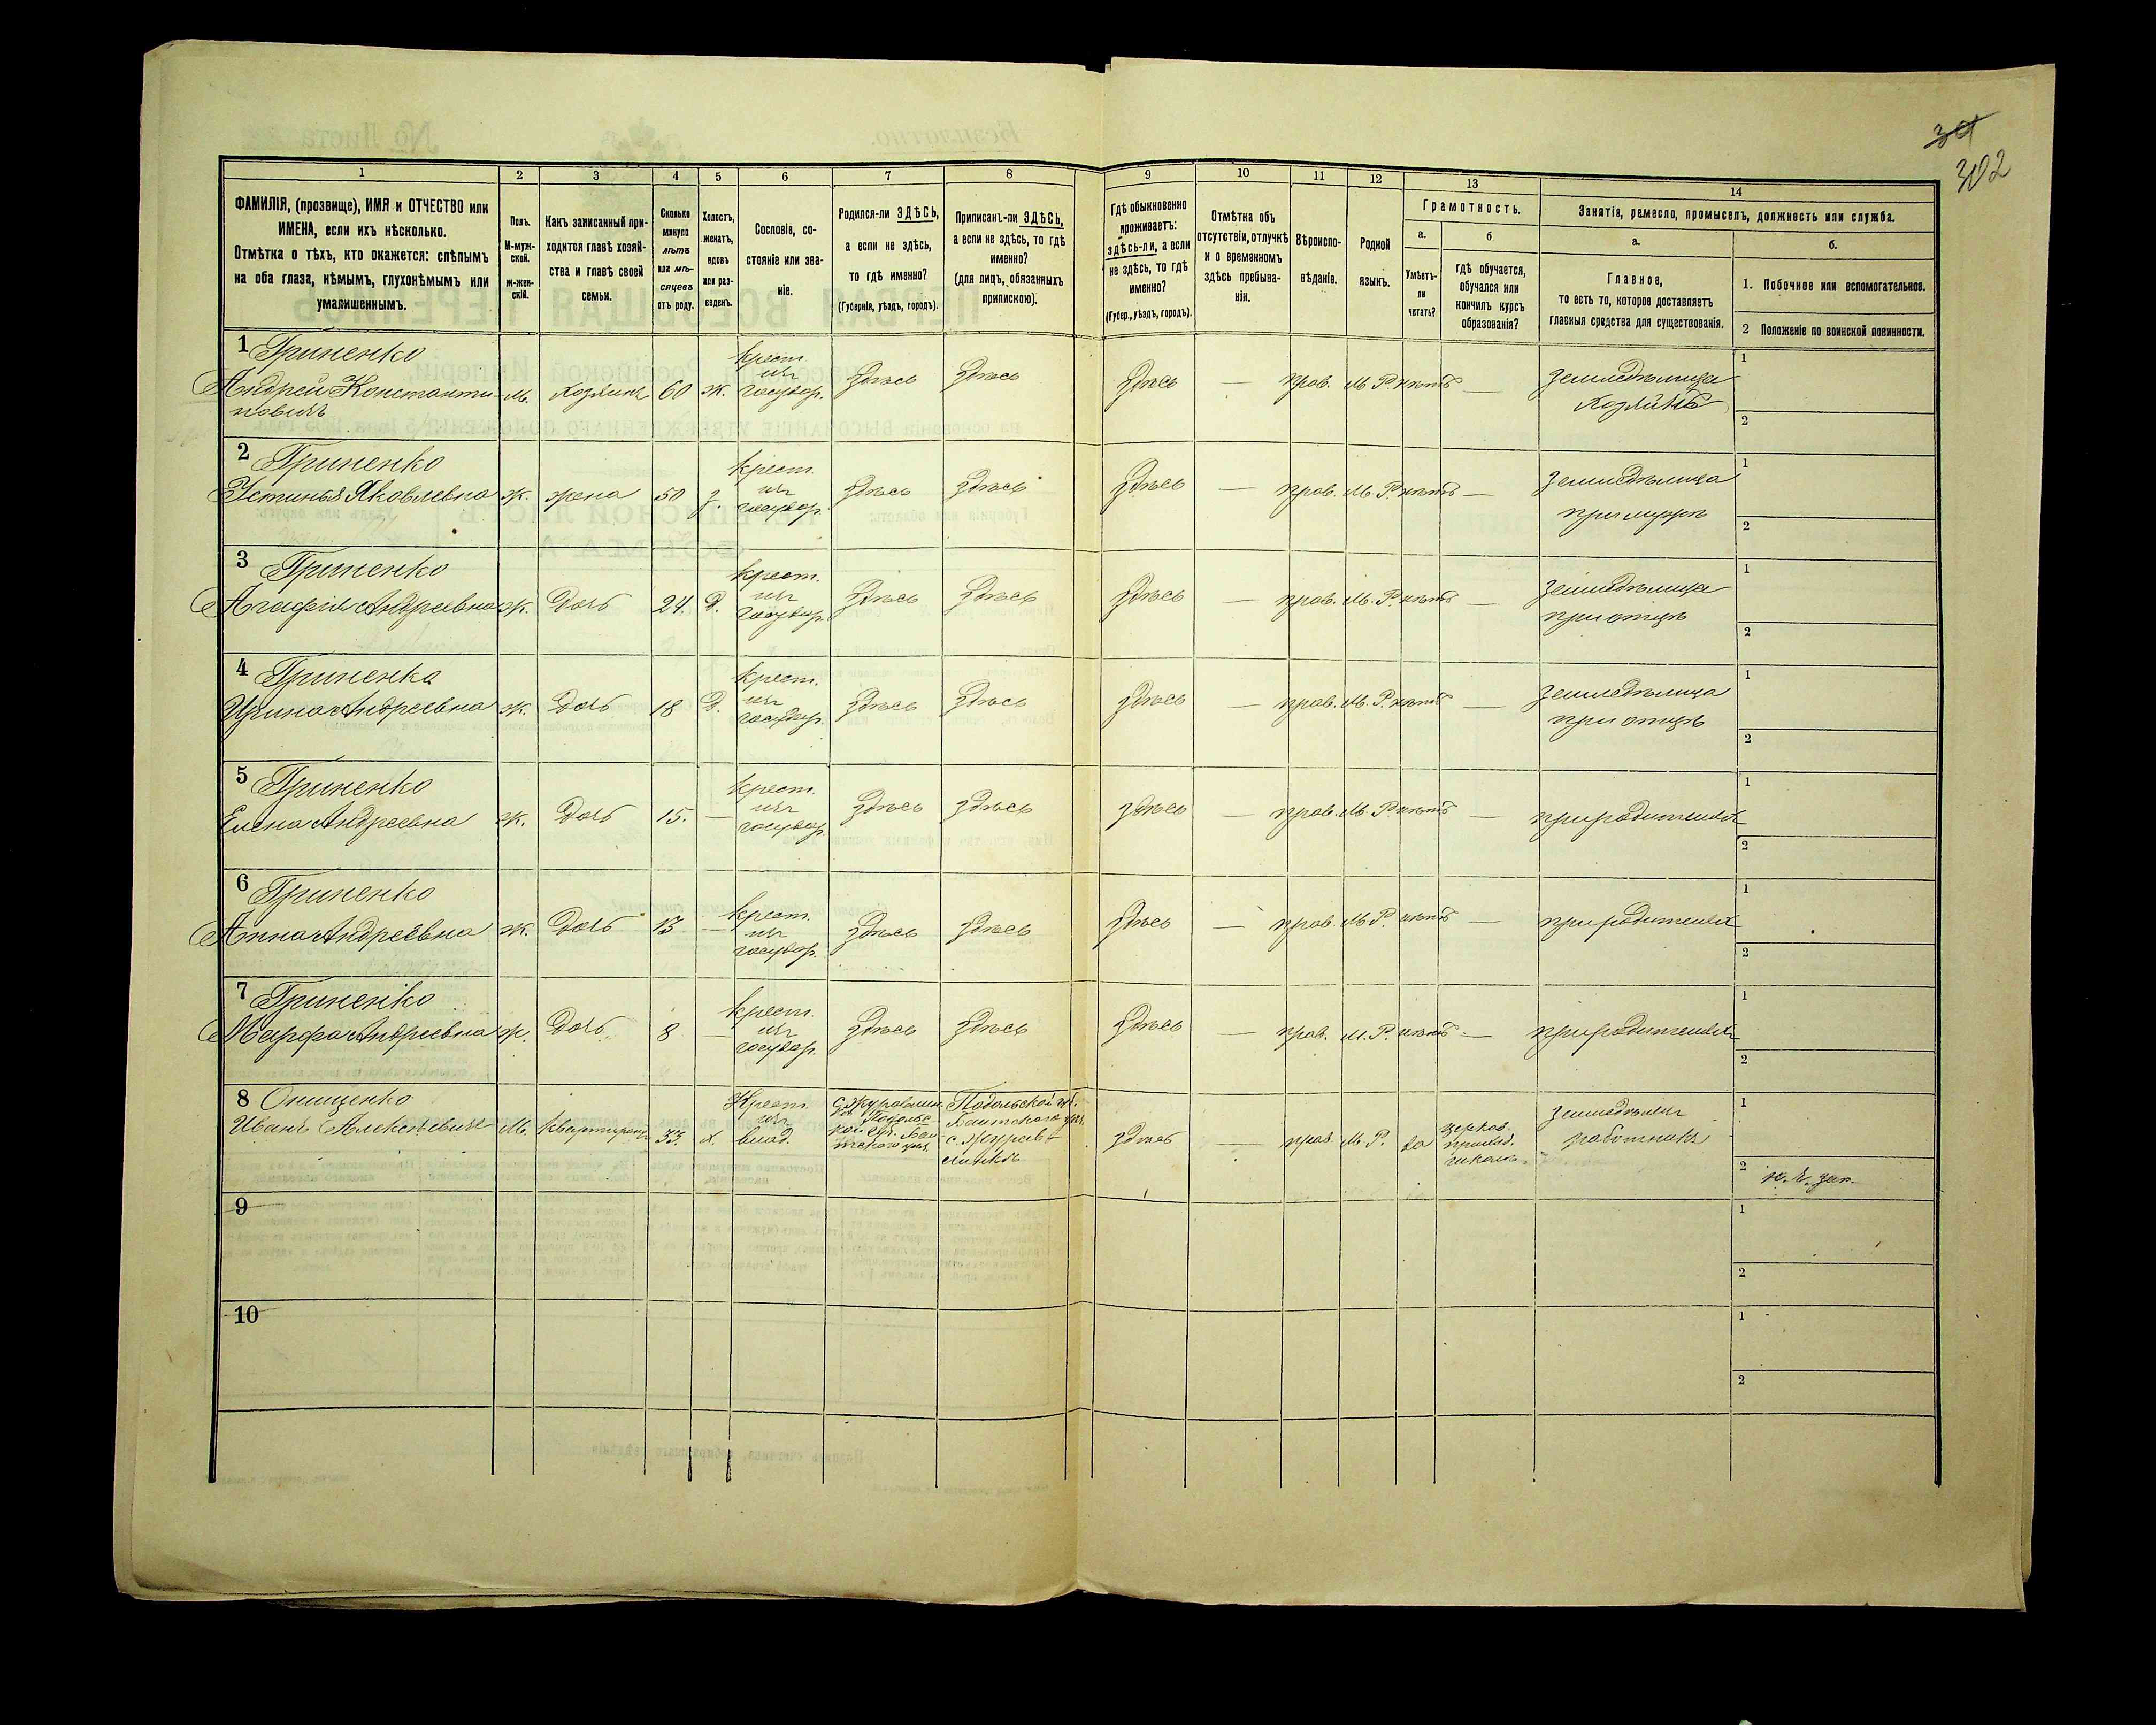 34
302
1
2
3
4
5
6
7
8
9
10
11
12
13
14
ФАМИЛІЯ, (прозвище), ИМЯ и ОТЧЕСТВО или
ИМЕНА, если ихъ нѣсколько.
Отмѣтка о тѣхъ, кто окажется: слѣпымъ
на оба глаза, нѣмымъ, глухонѣмымъ или
умалишеннымъ.
Полъ.
М-муж-
ской.
ж-жен-
скій.
Какъ записанный при-
ходится главѣ хозяй-
ства и главѣ своей
семьи.
Сколько
минуло
лѣтъ
или мѣ-
сяцевъ
отъ роду.
Холостъ,
женатъ,
вдовъ
или раз-
веденъ.
Сословіе, со-
стояніе или зва-
ніе.
Родился-ли ЗДѢСЬ,
а если не здѣсь,
то гдѣ именно?
(Губернія, уѣздъ, городъ).
Приписанъ-ли ЗДѢСЬ,
а если не здѣсь, то гдѣ
именно?
(для лицъ, обязанныхъ
припискою).
Гдѣ обыкновенно
проживаетъ:
здѣсь-ли, а если
не здѣсь, то гдѣ
именно?
(Губер., уѣздъ, городъ).
Отмѣтка объ
отсутствіи, отлучкѣ
и о временномъ
здѣсь пребыва-
ніи.
Вѣроиспо-
вѣданіе.
Родной
языкъ.
Грамотность.
а.
б
Умѣетъ-
ли
читать?
гдѣ обучается,
обучался или
кончилъ курсъ
образованія?
Занятія, ремесло, промыселъ, должность или служба.
а.
б.
Главное,
то есть то, которое доставляетъ
главныя средства для существованія.
1. Побочное или вспомогательное.
2 Положеніе по воинской повинности.
1 Гриненко
Андрей Константи-
новичъ
м. Хозяинъ 60 ж. Крест. изъ государ. здѣсь здѣсь здѣсь — прав. М.Р. нѣтъ — земледѣлица хозяинъ
1
2
2 Гриненко
Устинья Яковлевна ж. жена 50 з. Крест. изъ государ. здѣсь здѣсь здѣсь — прав. М.Р. нѣтъ — земледѣлица при мужѣ
1
2
3 Гриненко
Агафія Андреевна ж. Дочь 24. д. Крест. изъ государ. здѣсь здѣсь здѣсь — прав. М.Р. нѣтъ — земледѣлица при отцѣ
1
2
4 Гриненка
Ирина Андреевна ж. Дочь 18 д. Крест. изъ государ. здѣсь здѣсь здѣсь — прав. М.Р. нѣтъ — земледѣлица при отцѣ
1
2
5 Гриненко
Елена Андреевна ж. Дочь 15. — Крест. изъ государ. здѣсь здѣсь здѣсь — прав. М.Р. нѣтъ — при родителяхъ
1
2
6 Гриненко
Анна Андреевна ж. Дочь 13 — Крест. изъ государ. здѣсь здѣсь здѣсь — прав. М.Р. нѣтъ — при родителяхъ
1
2
7 Гриненко
Марфа Андреевна ж. Дочь 8 — Крест. изъ государ. здѣсь здѣсь здѣсь — прав. М.Р. нѣтъ — при родителяхъ
1
2
8 Онищенко
Иванъ Алексѣевичъ М. квартирантъ 33. х. Крест. изъ влад.
Подольской губ.
Балтского уѣз.
здѣсь — прав. М.Р. да церков. приход. школѣ
земледѣлецъ
работникъ
1
2
9
1
2
10
1
2